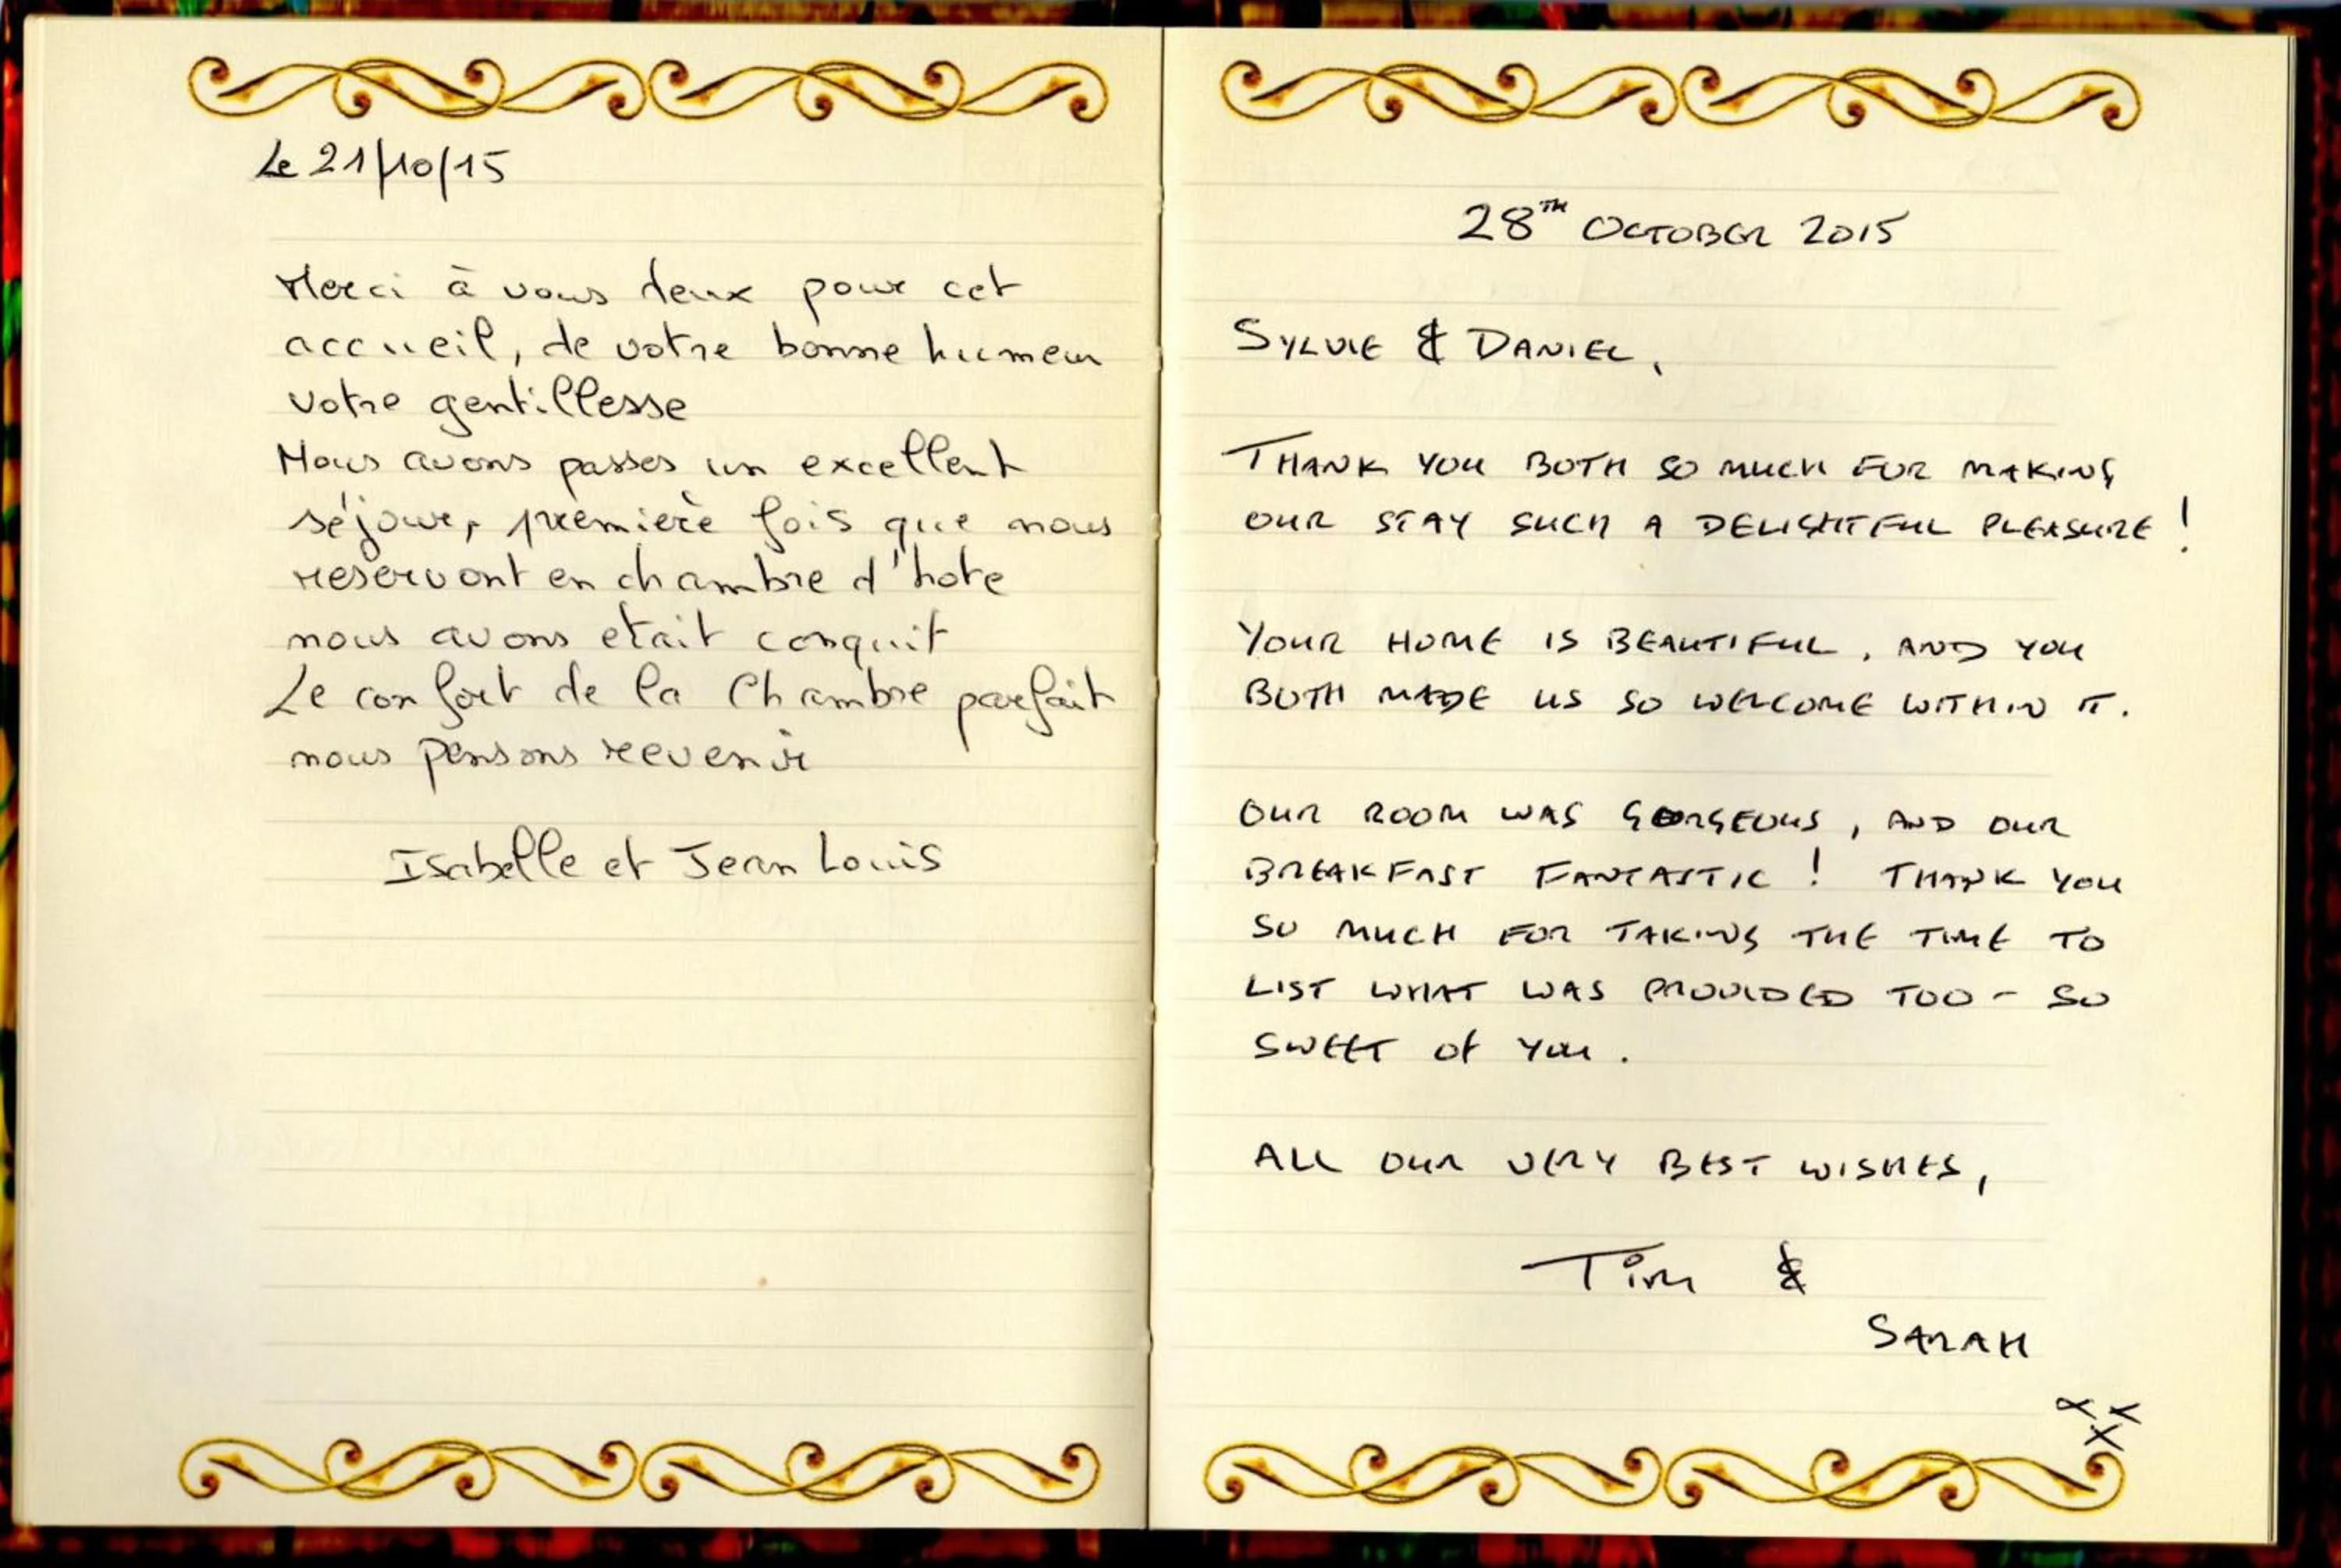 Le 21/10/15
Merci à vous deux pour cet
accueil, de votre bonne humeur
votre gentillesse
Nous avons passes un excellent
séjour, premierè fois que nous
reservont en chambre d'hote
nous avons etait conquit
Le confort de la Chambre parfait
nous pensons revenir
Isabelle et Jean Louis
28TH OCTOBER 2015
SYLVIE & DANIEL,
THANK YOU BOTH SO MUCH FOR MAKING
OUR STAY SUCH A DELIGHTFUL PLEASURE!
YOUR HOME IS BEAUTIFUL, AND YOU
BOTH MADE US SO WELCOME WITHIN IT.
OUR ROOM WAS GORGEOUS, AND OUR
BREAKFAST FANTASTIC! THANK YOU
SO MUCH FOR TAKING THE TIME TO
LIST WHAT WAS PROVIDED TOO - SO
SWEET of YOU.
ALL OUR VERY BEST WISHES,
Tim &
SARAH
xx
x